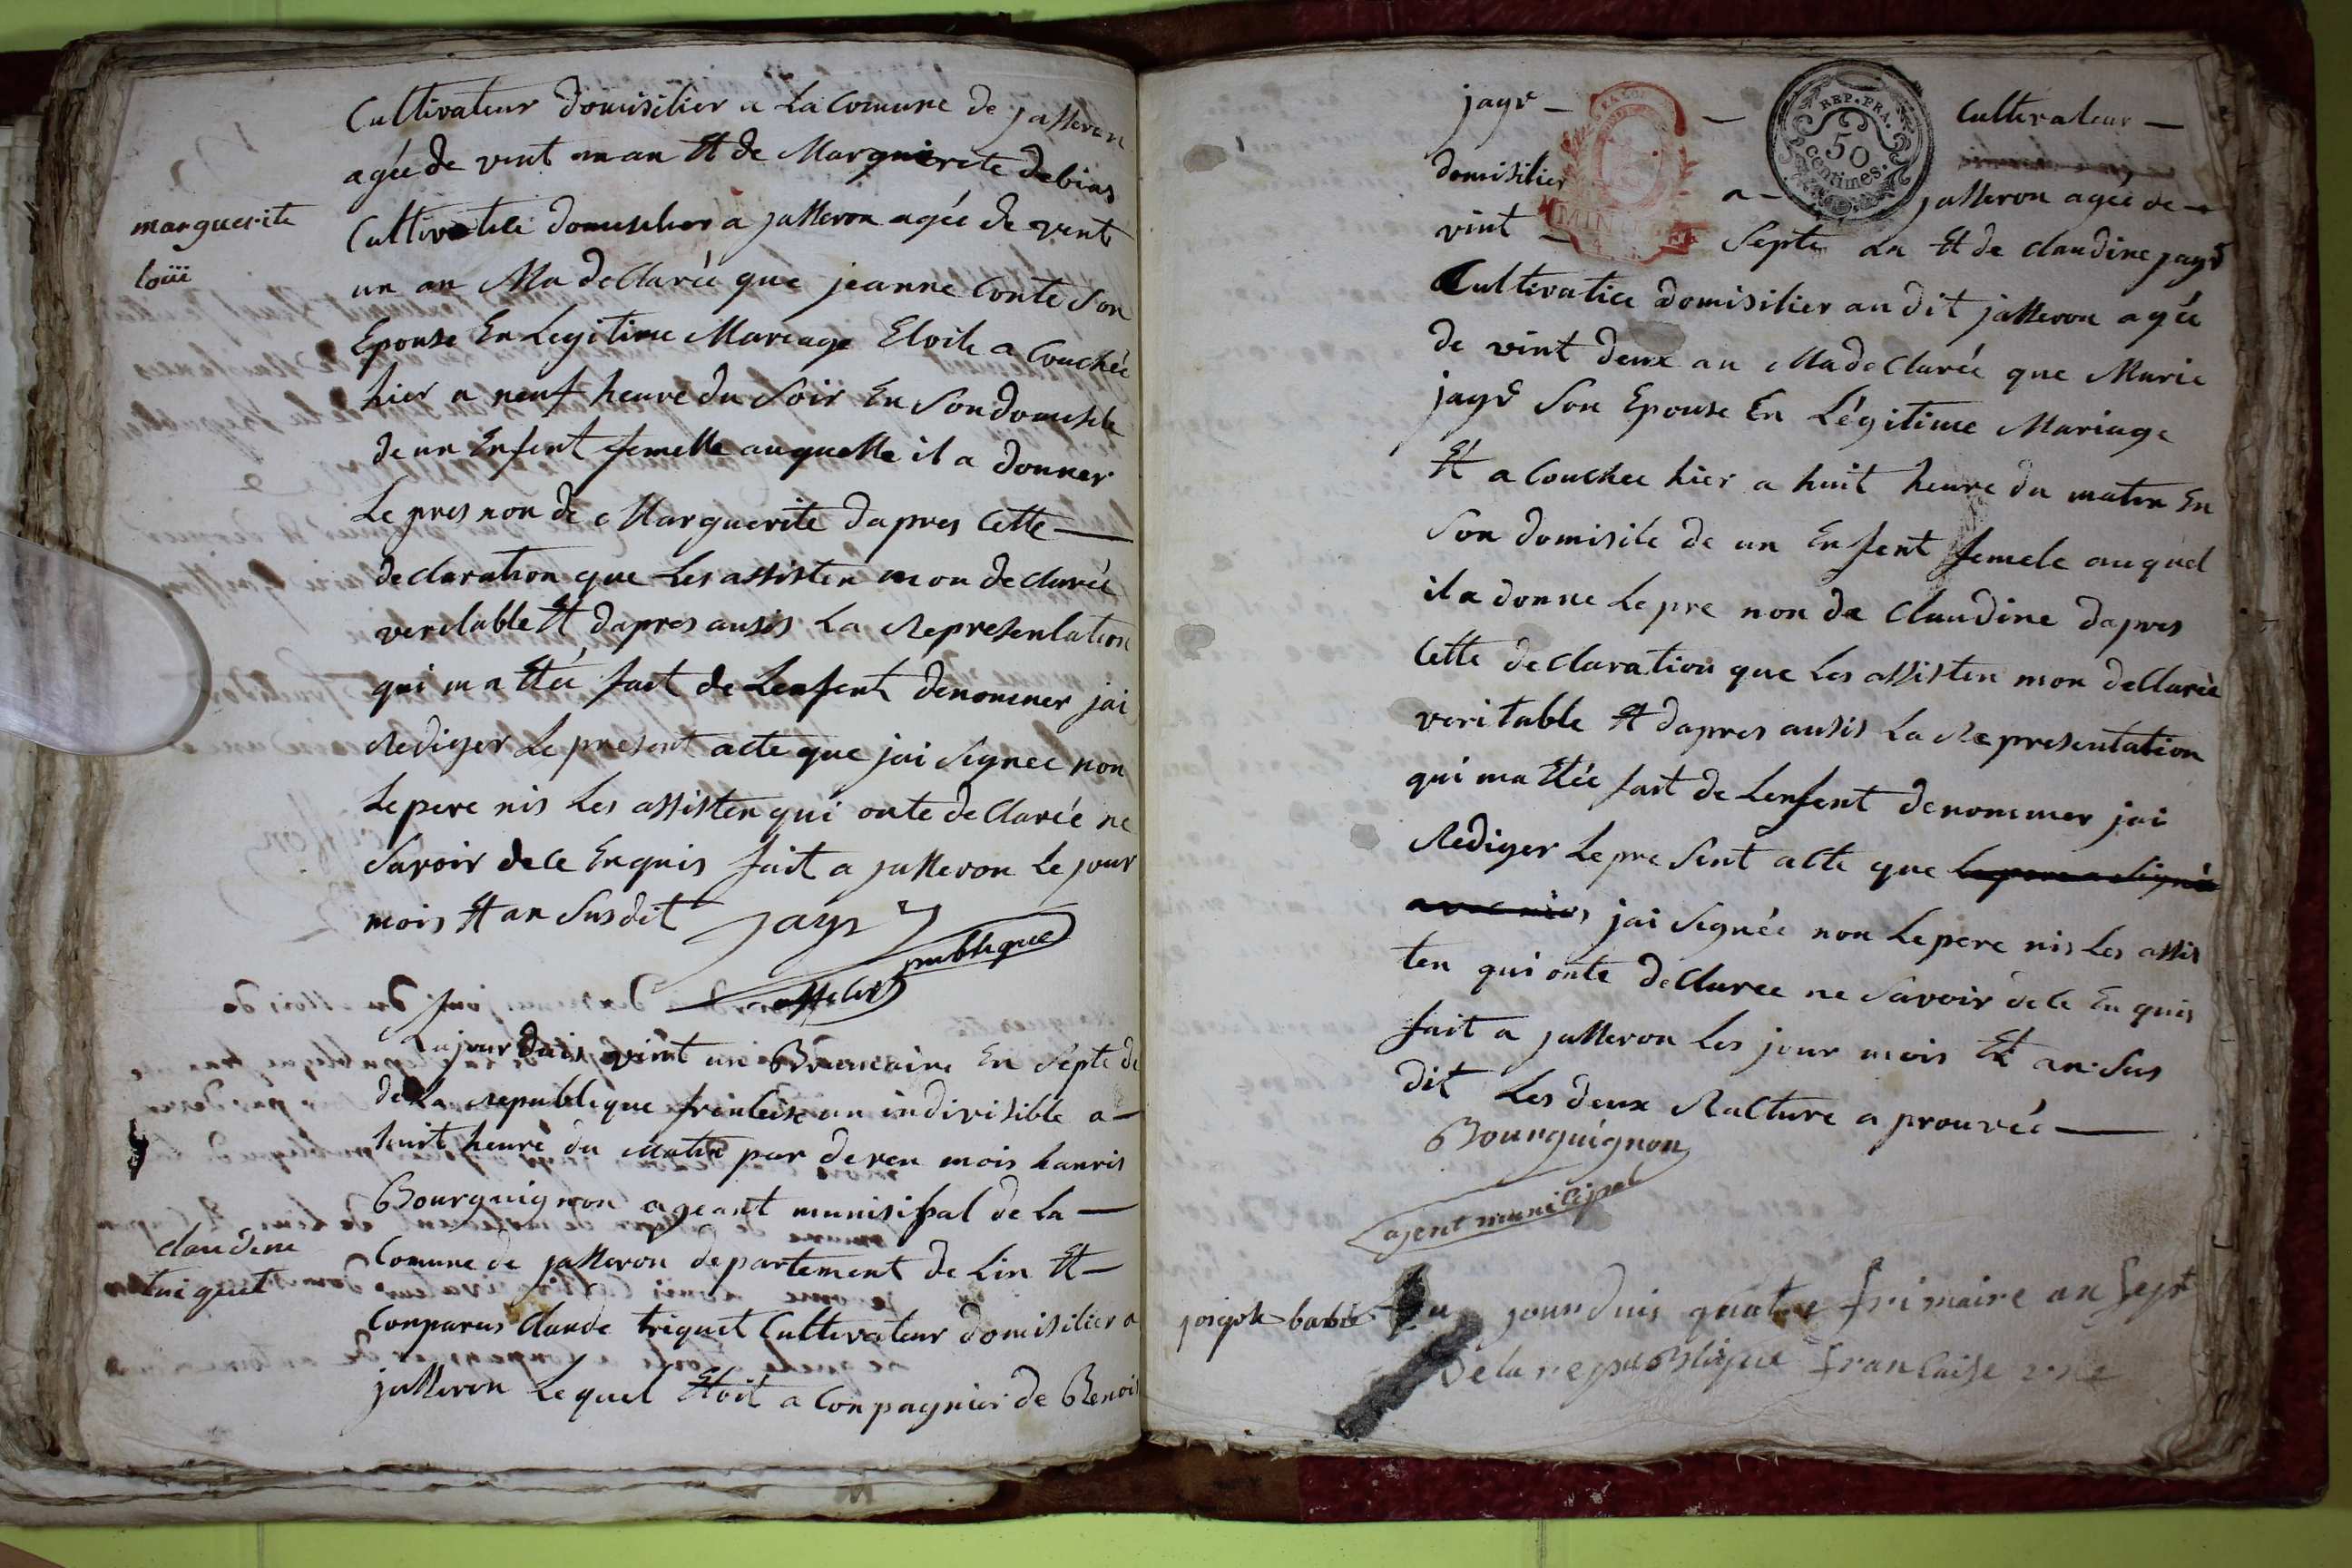 Cultivateur domisilier a La Comune de jasseron
agée de vint un an Et de Marguerite debias
marguerite
loüi
Cultivatice domisilier a jasseron agée de vint
un an Ma declarée que jeanne Conte Son
Epouse En Legitime Mariage Etoite a Couchée
hier a neuf heure du Soir En Son domisile
de un Enfent femelle auquelle il a donner
Le pres non de Marguerite dapres Cette
declaration que Les assisten mon declarée
veritable Et dapres ausis La Representation
qui ma Etée fait de Lenfent denommer jai
Rediger Le present acte que jai Signee non
Le pere nis Les assisten qui onte declarée ne
Savoir de Ce Enquis fait a jasseron Le jour
mois Et an Sus dit jayr
publique
officier
Aujourduis vint un Brumaire En Septe de
de La Republique frinceise un indivisible a
huit heure du Matin par deven mois hanris
Bourguignon ageant munisipal de La
claudine
triquet
Comune de jasseron departement de Lin Et
Conparus Claude triquet Cultivateur domisilier a
jasseron Lequel Etoit a Conpagnier de Benoit
jayr Cultivateur
REP. FRA.
50
centimes.
domisilier a jasseron agée de
vint Septe an Et de claudine jayr
Cultivatice domisilier au dit jasseron agée
de vint deux an Ma declarée que Marie
jayr Son Epouse En Légitime Mariage
Et a Couchee hier a huit heure du matin En
Son domisile de un Enfent femele auquel
il a donne Le pre non de Claudine dapres
Cette declaration que Les assisten mon declarée
veritable Et dapres ausis La Representation
qui ma Etée fait de Lenfent denommer jai
Rediger Le pre Sent acte que Le pere a Signée
avec mois jai Signée non Le pere nis Les assis
ten qui onte declaree ne Savoir de Ce En quis
fait a jasseron Les jour mois Et an Sus
dit Les deux Rature a prouvée
Bourguignon
agent municipal
barbe
Au jourduis quatre frimaire an Sept
de la republique francaise une